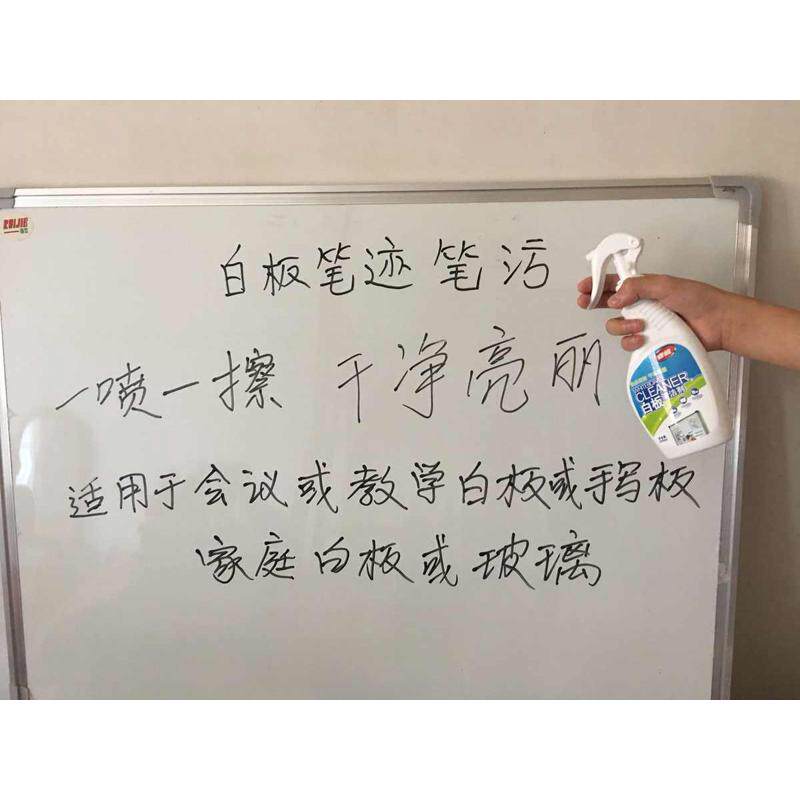 RUIJIE
白板笔迹笔污
一喷一擦 干净亮丽
适用于会议或教学白板或手写板
家庭白板或玻璃
CLEANER
白板清洁剂